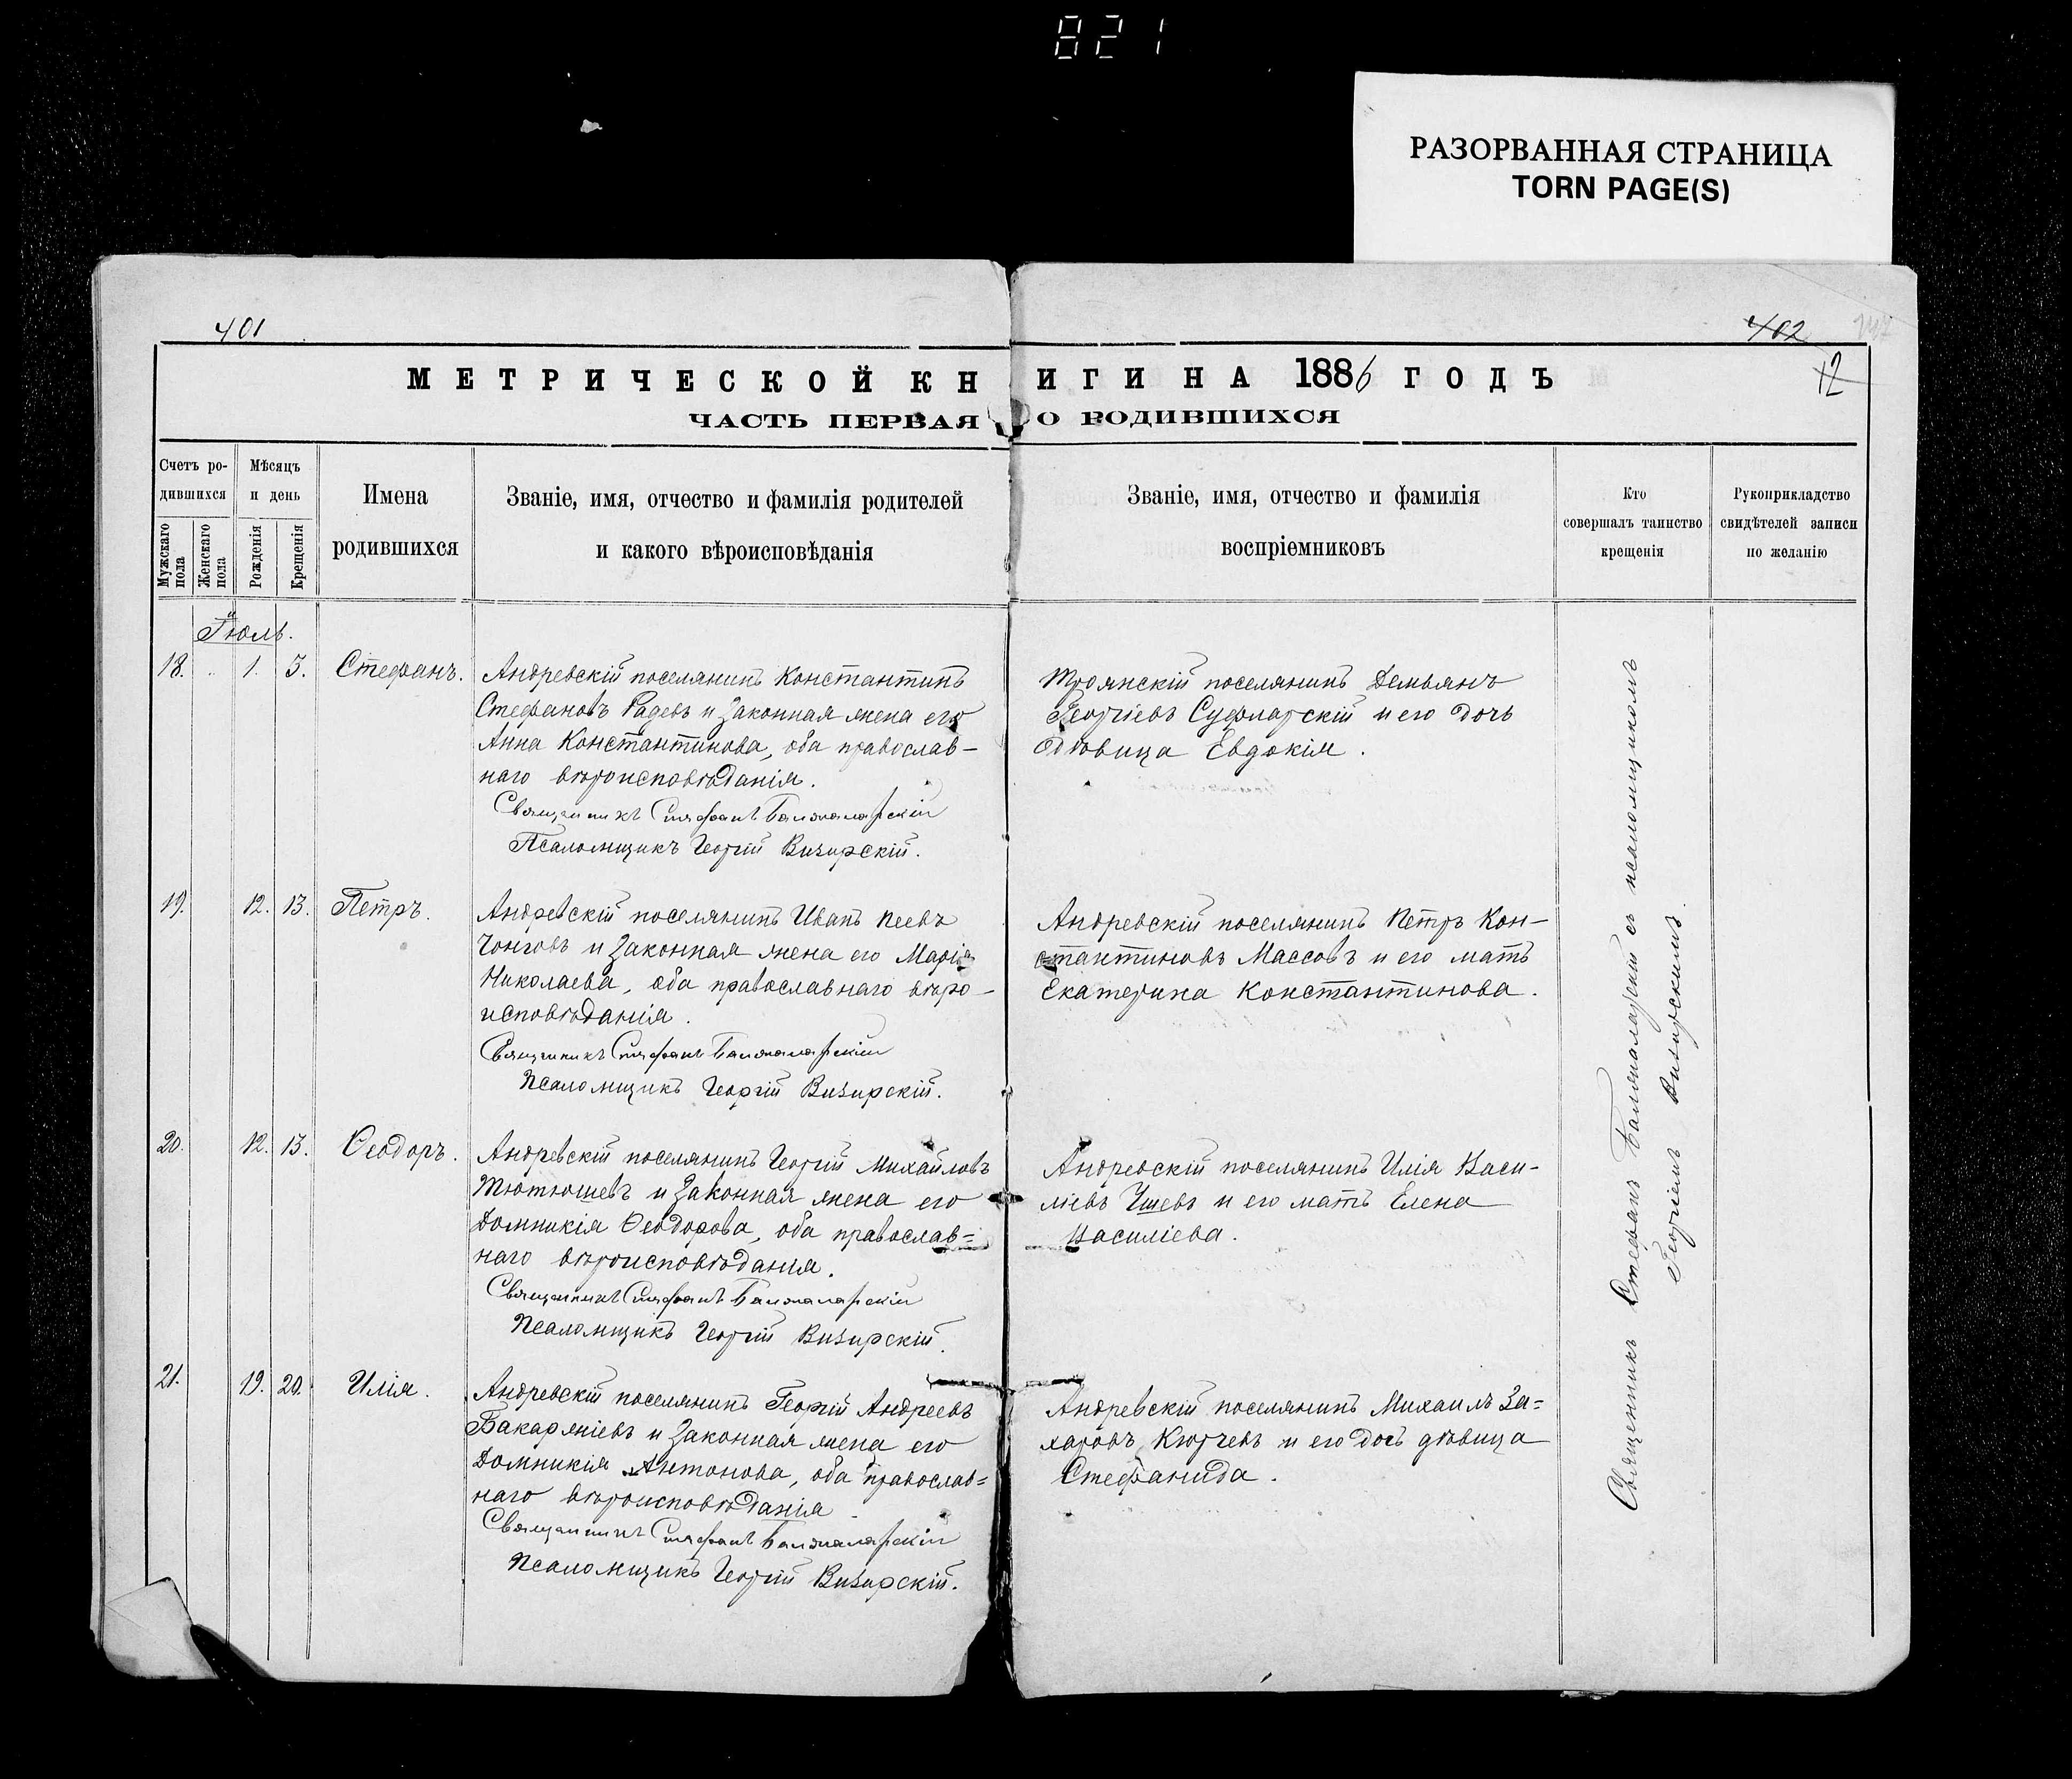 821
РАЗОРВАННАЯ СТРАНИЦА
TORN PAGE(S)
401
402
12
МЕТРИЧЕСКОЙ КНИГИ НА 1886 ГОДЪ
ЧАСТЬ ПЕРВАЯ О РОДИВШИХСЯ
Счетъ ро-
дившихся
Мужскаго пола
Женскаго пола
Мѣсяцъ
и день
Рожденія
Крещенія
Имена
родившихся
Званіе, имя, отчество и фамилія родителей
и какого вѣроисповѣданія
Званіе, имя, отчество и фамилія
воспріемниковъ
Кто
совершалъ таинство
крещенія
Рукоприкладство
свидѣтелей записи
по желанію
Іюль.
18. 1. 5. Стефанъ.
Андревскій поселянинъ Константинъ
Стефановъ Радевъ и законная жена его
Анна Константинова, оба православ-
наго вѣроисповѣданія.
Священникъ Стефанъ Балжаларскій
Псаломщикъ Георгій Визирскій.
Троянскій поселянинъ Демьянъ
Георгіевъ Суфларскій и его дочь
дѣвица Евдокія.
19. 12. 13. Петръ.
Андревскій поселянинъ Иванъ Пеевъ
Чонговъ и законная жена его Марія
Николаева, оба православнаго вѣро-
исповѣданія.
Священникъ Стефанъ Балжаларскій
Псаломщикъ Георгій Визирскій.
Андревскій поселянинъ Петръ Кон-
стантиновъ Массовъ и его мать
Екатерина Константинова.
20. 12. 13. Ѳеодоръ.
Андревскій поселянинъ Георгій Михайловъ
Тютюшевъ и законная жена его
Домникія Ѳеодорова, оба православ=
наго вѣроисповѣданія.
Священникъ Стефанъ Балжаларскій
Псаломщикъ Георгій Визирскій.
Андревскій поселянинъ Илія Васи-
ліевъ Ушевъ и его мать Елена
Василіева.
21. 19. 20. Илія.
Андревскій поселянинъ Георгій Андреевъ
Бакаржіевъ и законная жена его
Домникія Антонова, оба православ=
наго вѣроисповѣданія
Священникъ Стефанъ Балжаларскій
Псаломщикъ Георгій Визирскій.
Андревскій поселянинъ Михаилъ За=
харовъ Кюрчевъ и его дочь дѣвица
Стефанида.
Священникъ Стефанъ Балжаларскій съ псаломщикомъ
Георгіемъ Визирскимъ.